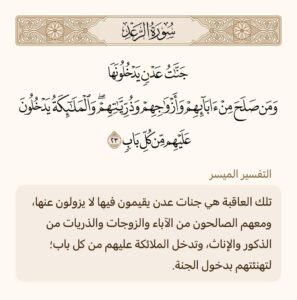 سُورَةُ الرَّعْدِ
جَنَّٰتُ عَدْنٍ يَدْخُلُونَهَا
وَمَن صَلَحَ مِنْ ءَابَآئِهِمْ وَأَزْوَٰجِهِمْ وَذُرِّيَّٰتِهِمْ ۖ وَٱلْمَلَٰٓئِكَةُ يَدْخُلُونَ
عَلَيْهِم مِّن كُلِّ بَابٍ ٢٣
التفسير الميسر
تلك العاقبة هي جنات عدن يقيمون فيها لا يزولون عنها،
ومعهم الصالحون من الآباء والزوجات والذريات من
الذكور والإناث، وتدخل الملائكة عليهم من كل باب؛
لتهنئتهم بدخول الجنة.